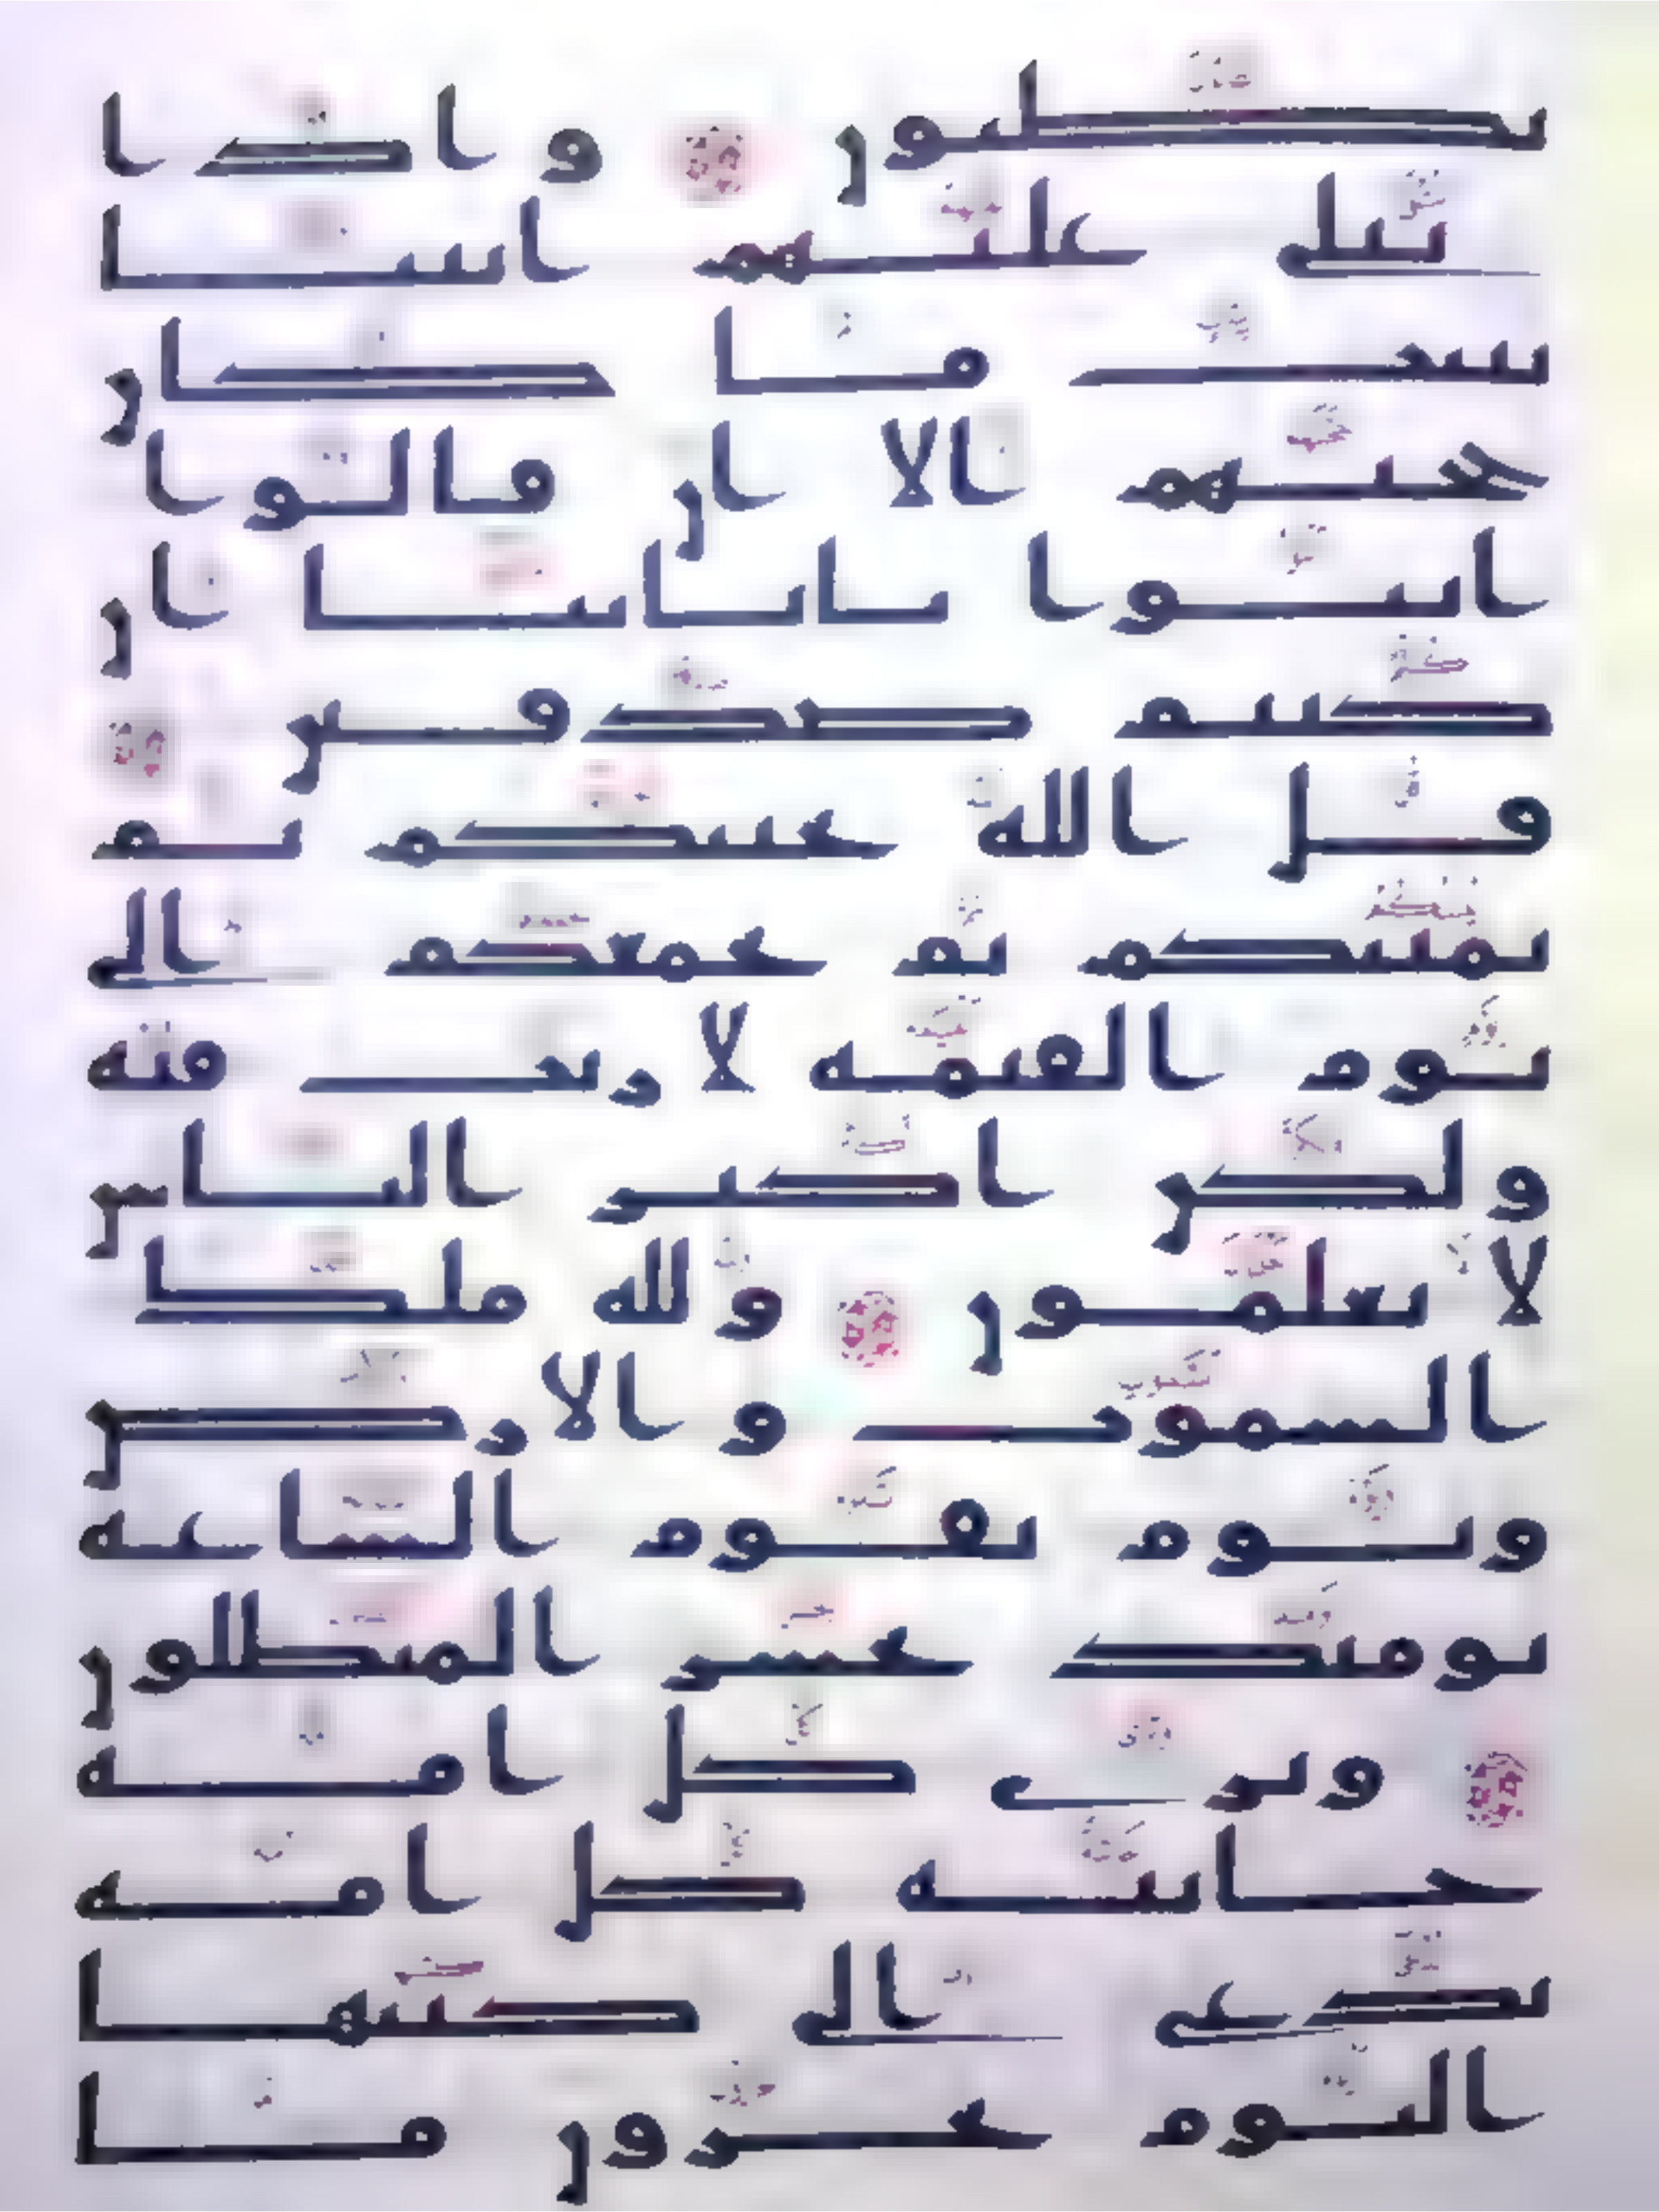 يظنون واذا
تتلى عليهم ايتنا
بينت ما كان
حجتهم الا ان قالوا
ائتوا بابائنا ان
كنتم صدقين
قل الله يحييكم ثم
يميتكم ثم يجمعكم الى
يوم القيمة لا ريب فيه
ولكن اكثر الناس
لا يعلمون ولله ملك
السموت والارض
ويوم تقوم الساعة
يومئذ يخسر المبطلون
وترى كل امة
جاثية كل امة
تدعى الى كتبها
اليوم تجزون ما